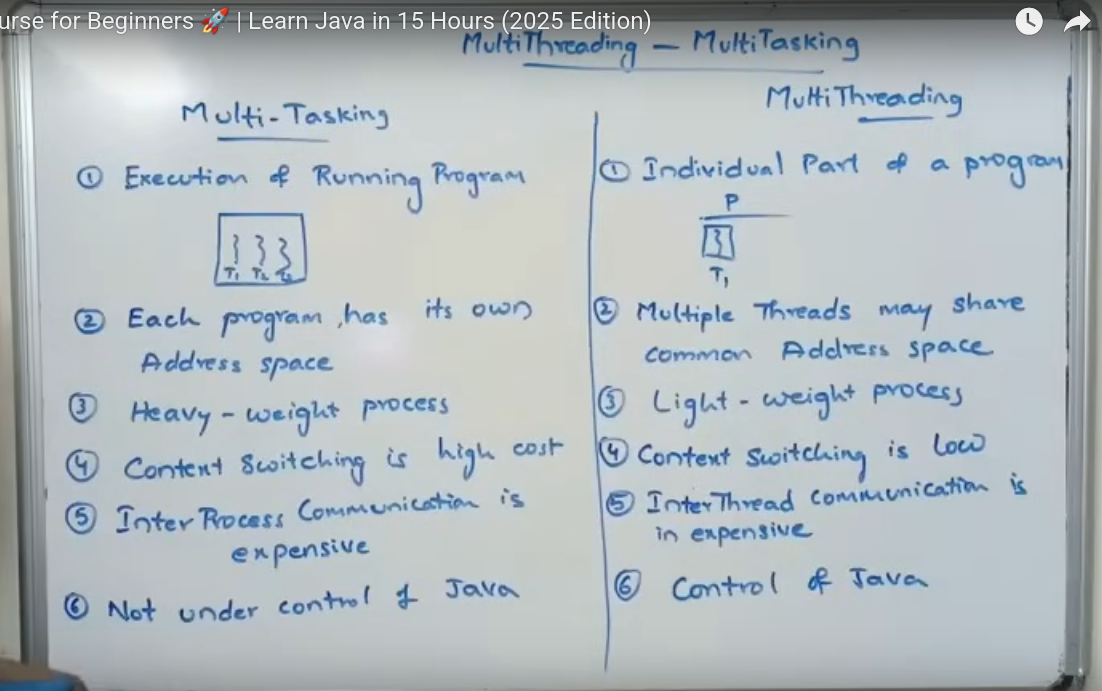 urse for Beginners 🚀 | Learn Java in 15 Hours (2025 Edition)
MultiThreading - MultiTasking
Multi-Tasking
① Execution of Running Program
T1 T2
② Each program, has its own
Address space
③ Heavy-weight process
④ Context Switching is high cost
⑤ Inter Process Communication is
expensive
⑥ Not under control of Java
MultiThreading
① Individual Part of a program
P
T1
② Multiple Threads may share
common Address space
③ Light-weight process
④ Context Switching is low
⑤ InterThread communication is
in expensive
⑥ Control of Java